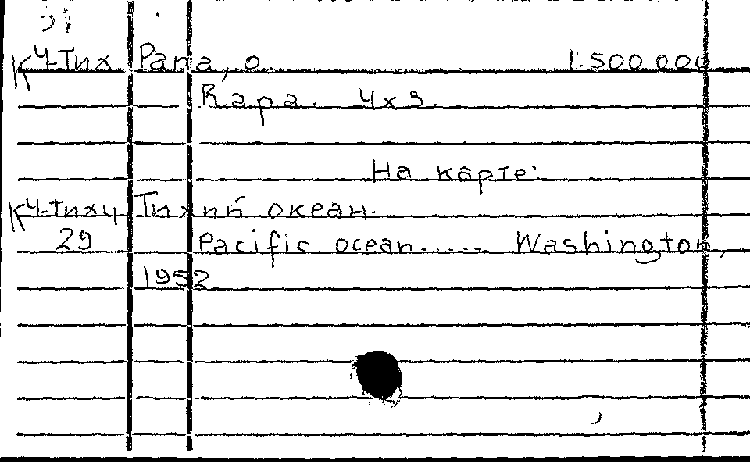 К4-Тих Рапа, о. 1:500 000
Rapa. 4x3.
На карте:
К4-Тих4 Тихий океан.
29 Pacific ocean..... Washington,
1952